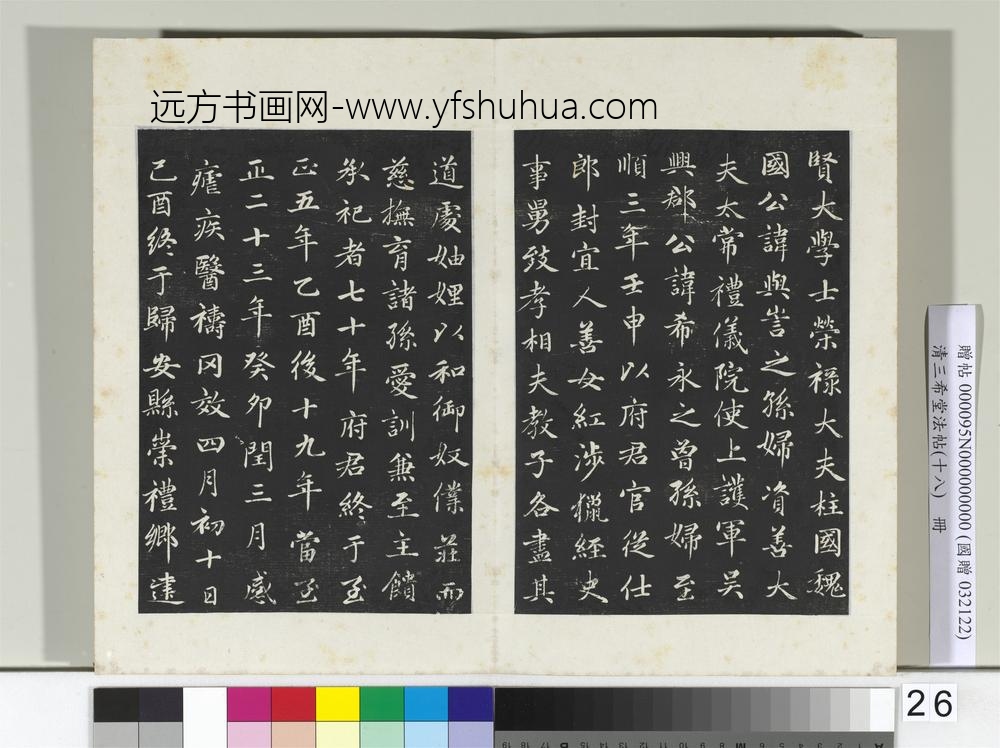 远方书画网-www.yfshuhua.com
賢大學士榮祿大夫柱國魏
國公諱與訔之孫婦資善大
夫太常禮儀院使上護軍吴
興郡公諱希永之曾孫婦至
順三年壬申以府君官從仕
郎封宜人善女紅涉獵經史
事舅致孝相夫教子各盡其
道處妯娌以和御奴僕莊而
慈撫育諸孫愛訓兼至主饋
承祀者七十年府君終于至
正五年乙酉後十九年當至
正二十三年癸卯閏三月感
瘧疾醫禱罔效四月初十日
己酉終于歸安縣崇禮鄉建
贈帖 000095N000000000 (國贈 032122)
清三希堂法帖(十八) 冊
26